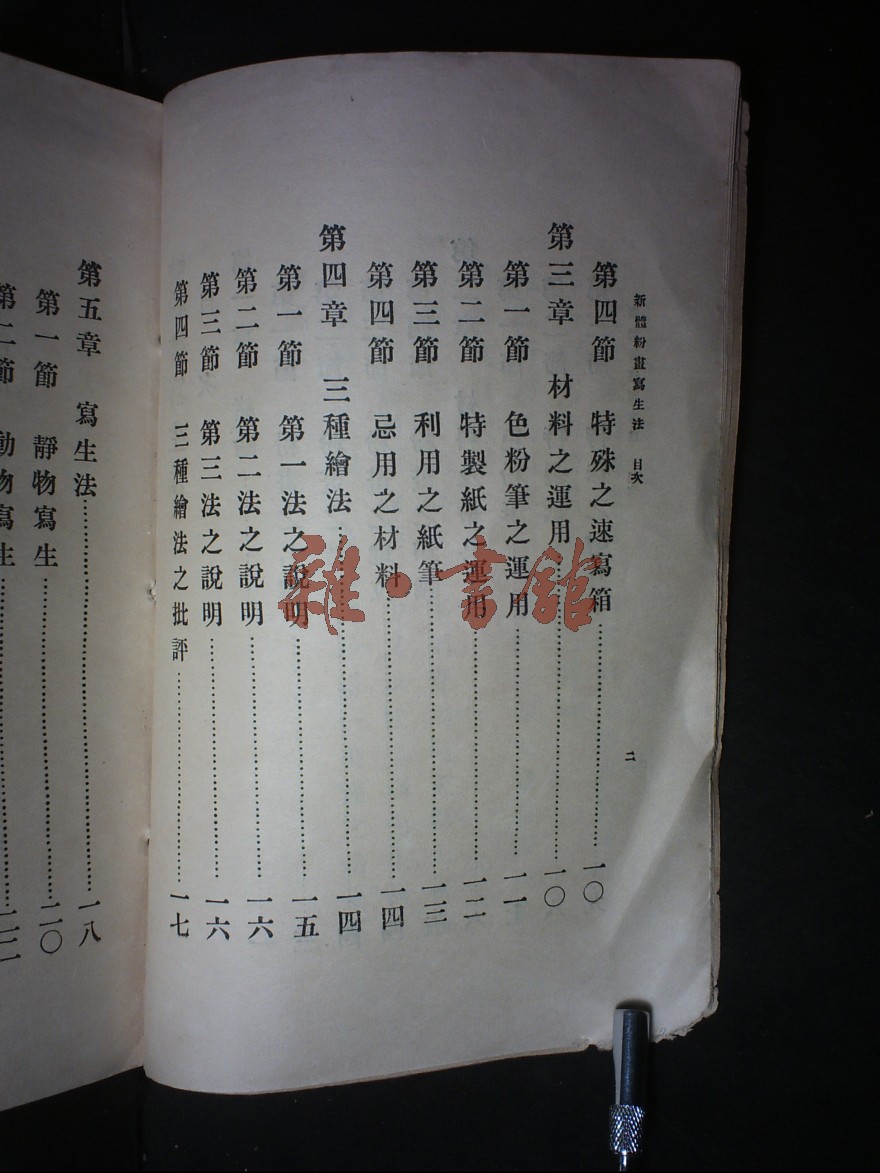 新體粉畫寫生法 目次 二
第四節 特殊之速寫箱……一〇
第三章 材料之運用……一〇
第一節 色粉筆之運用……一一
第二節 特製紙之運用……一二
第三節 利用之紙筆……一三
第四節 忌用之材料……一四
第四章 三種繪法……一四
第一節 第一法之說明……一五
第二節 第二法之說明……一六
第三節 第三法之說明……一六
第四節 三種繪法之批評……一七
第五章 寫生法……一八
第一節 靜物寫生……二〇
第二節 動物寫生……
雜·書館